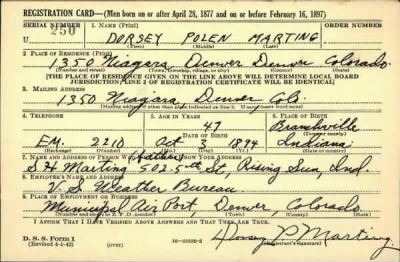 REGISTRATION CARD—(Men born on or after April 28, 1877 and on or before February 16, 1897)
SERIAL NUMBER 1. NAME (Print) ORDER NUMBER
250 DORSEY POLEN MARTING
(First) (Middle) (Last)
2. PLACE OF RESIDENCE (Print)
1350 Niagara Denver Denver Colorado
(Number and street) (Town, township, village, or city) (County) (State)
[THE PLACE OF RESIDENCE GIVEN ON THE LINE ABOVE WILL DETERMINE LOCAL BOARD
JURISDICTION; LINE 2 OF REGISTRATION CERTIFICATE WILL BE IDENTICAL]
3. MAILING ADDRESS
1350 Niagara, Denver, Colo.
[Mailing address if other than place indicated on line 2. If same insert word same]
4. TELEPHONE 5. AGE IN YEARS 6. PLACE OF BIRTH
47 Branchville
DATE OF BIRTH (Town or county)
EM. 2210 Oct 3 1894 Indiana
(Exchange) (Number) (Mo.) (Day) (Yr.) (State or country)
7. NAME AND ADDRESS OF PERSON WHO WILL ALWAYS KNOW YOUR ADDRESS
(father)
S H Marting 502.5th St, Rising Sun, Ind.
8. EMPLOYER'S NAME AND ADDRESS
U. S. Weather Bureau
9. PLACE OF EMPLOYMENT OR BUSINESS
Municipal Air Port, Denver, Colorado.
(Number and street or R. F. D. number) (Town) (County) (State)
I AFFIRM THAT I HAVE VERIFIED ABOVE ANSWERS AND THAT THEY ARE TRUE.
D. S. S. Form 1
(Revised 4-1-42) (over) Dorsey P. Marting
(Registrant's signature)